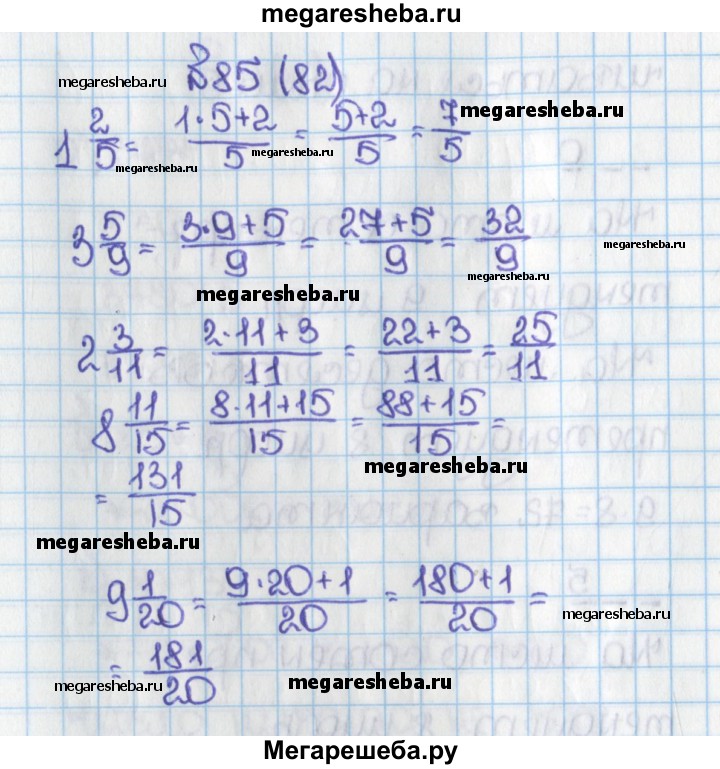 megaresheba.ru
№85 (82)
megaresheba.ru
1 2/5 = (1·5+2)/5 = (5+2)/5 = 7/5
megaresheba.ru
megaresheba.ru
megaresheba.ru
3 5/9 = (3·9+5)/9 = (27+5)/9 = 32/9
megaresheba.ru
megaresheba.ru
megaresheba.ru
2 3/11 = (2·11+3)/11 = (22+3)/11 = 25/11
8 11/15 = (8·11+15)/15 = (88+15)/15 =
megaresheba.ru
= 131/15
megaresheba.ru
9 1/20 = (9·20+1)/20 = (180+1)/20 =
megaresheba.ru
= 181/20
megaresheba.ru
megaresheba.ru
Мегарешеба.ру